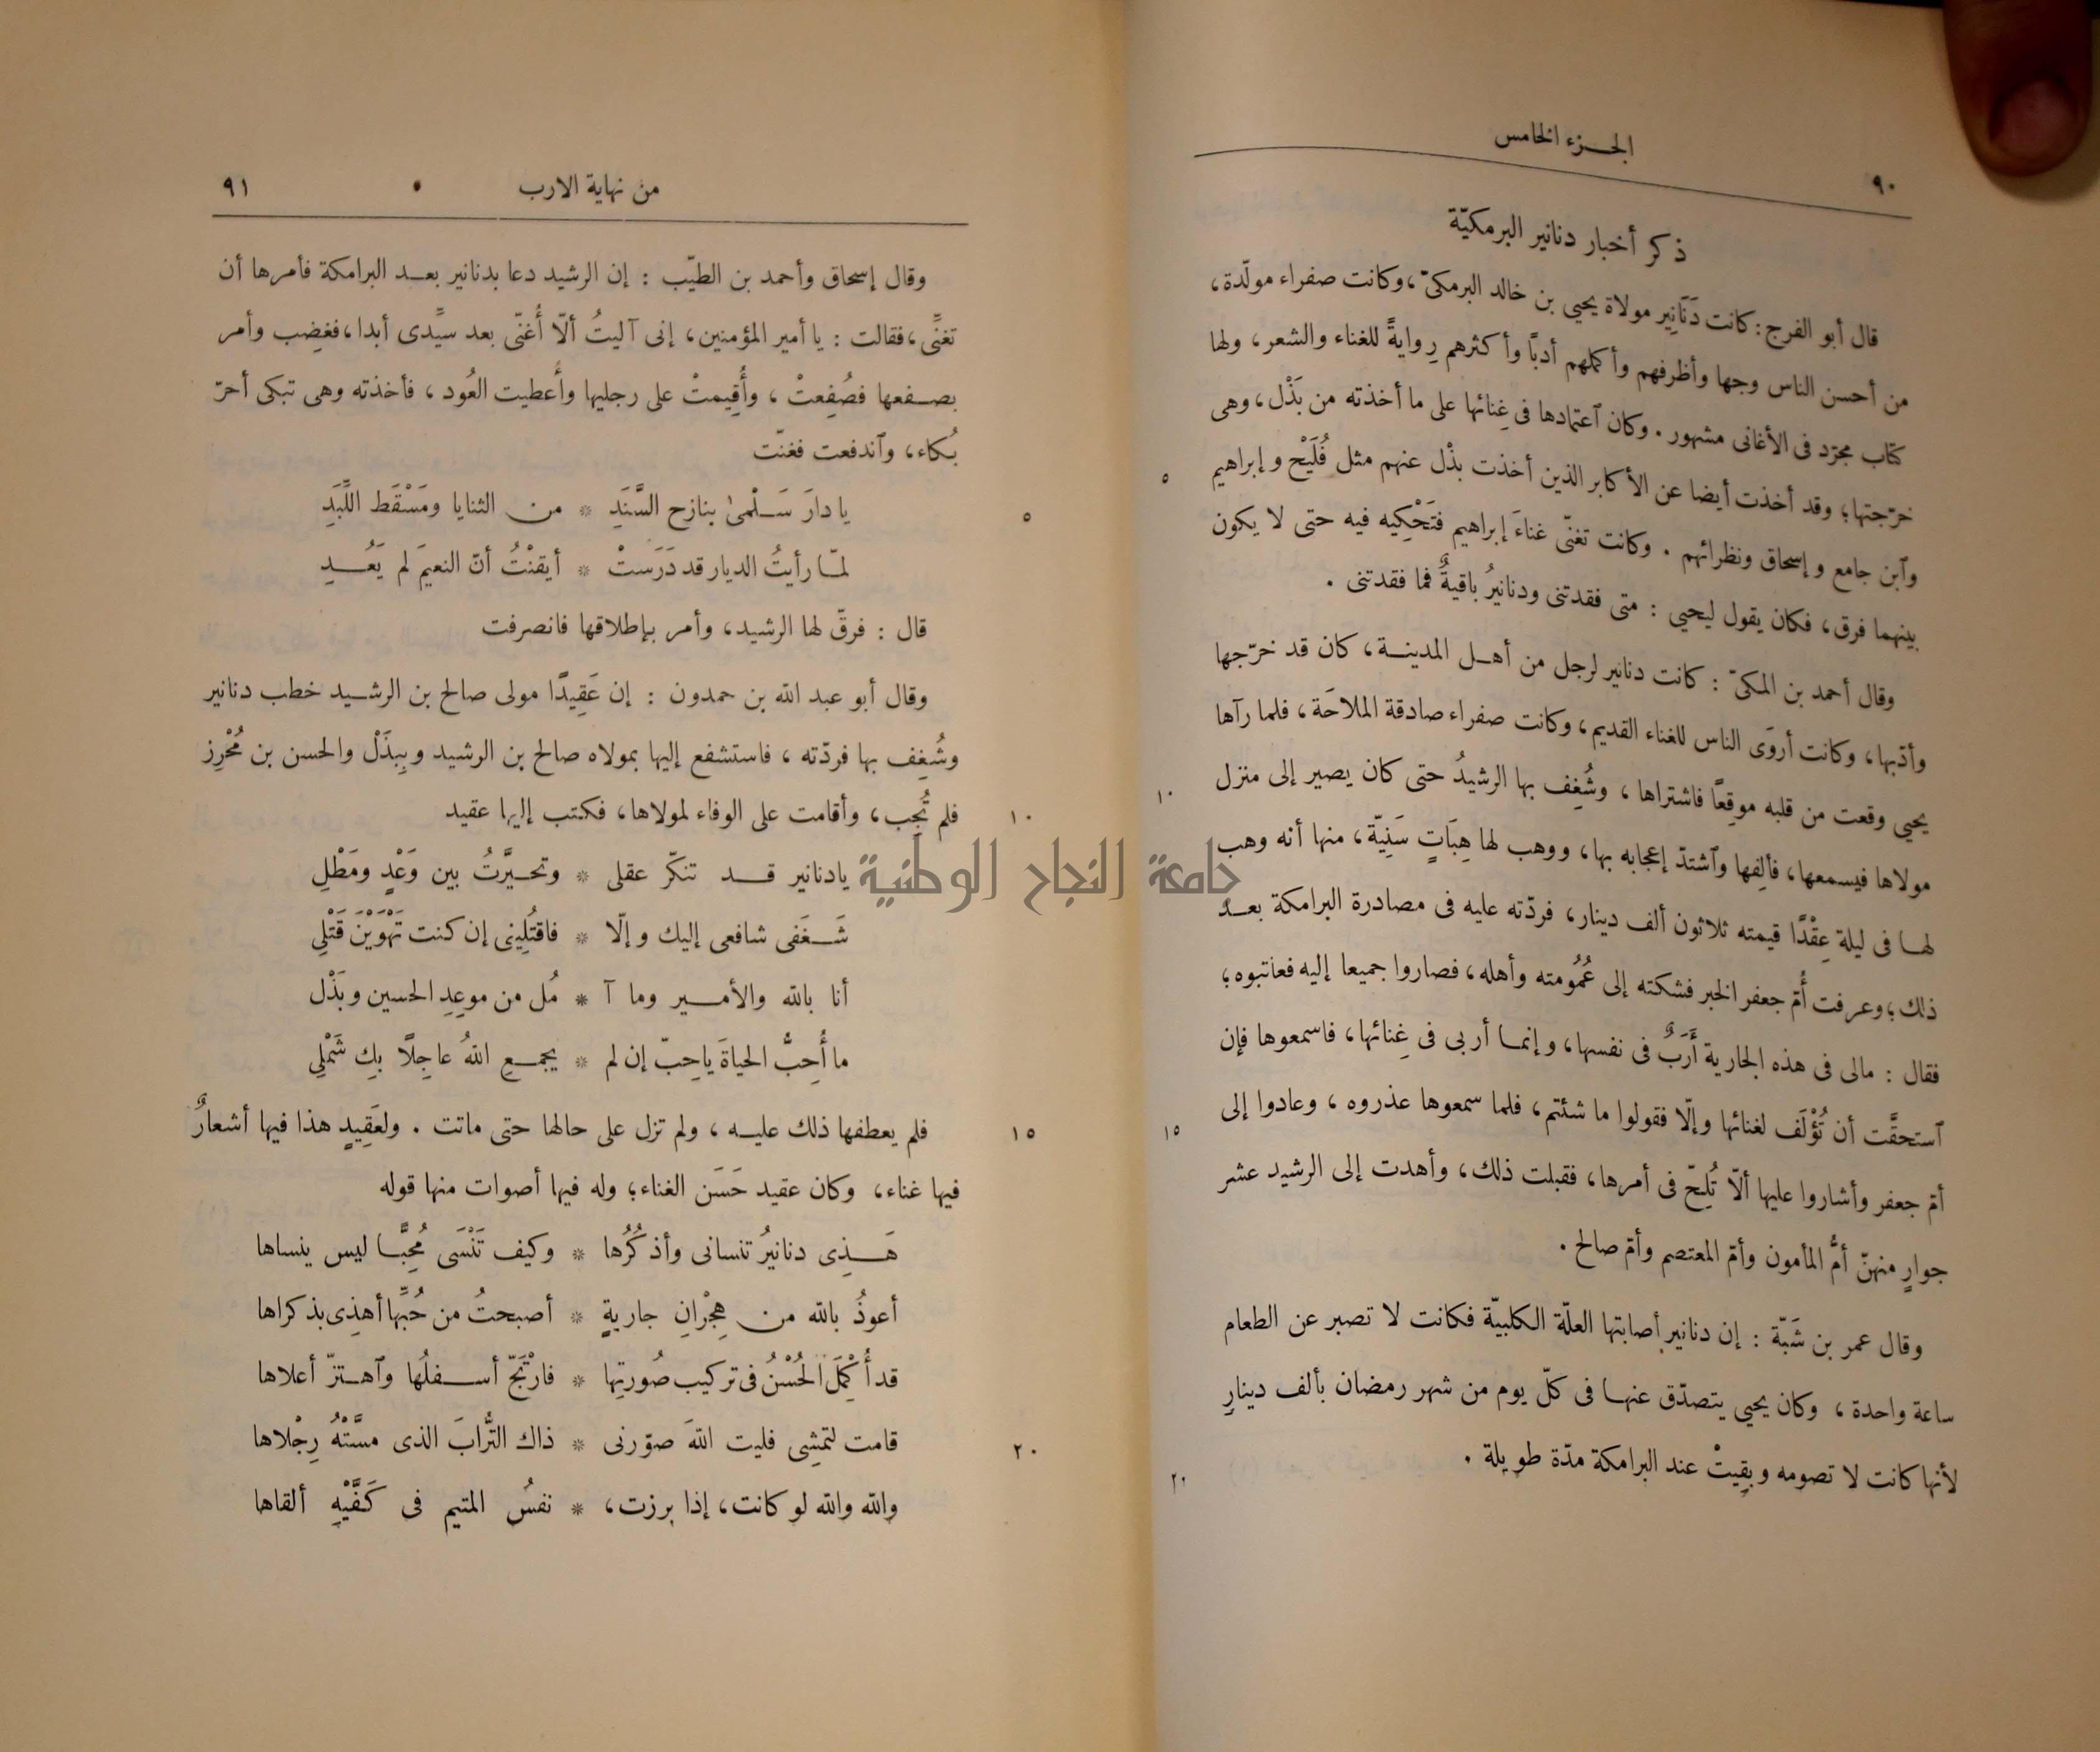 الجـزء الخامس
٩٠
ذكر أخبار دنانير البرمكيّة
قال أبو الفرج: كانت دَنَانِير مولاة يحيى بن خالد البرمكىّ، وكانت صفراء مولّدة،
من أحسن الناس وجها وأظرفهم وأكملهم أدبًا وأكثرهم رِوايةً للغناء والشعر، ولها
كتاب مجرّد فى الأغانى مشهور. وكان ٱعتمادها فى غِنائها على ما أخذته من بَذْل، وهى
خرّجتها؛ وقد أخذت أيضا عن الأكابر الذين أخذت بذْل عنهم مثل فُلَيْح وإبراهيم
٥
وٱبن جامع وإسحاق ونظرائهم. وكانت تغنّى غناءَ إبراهيم فتَحْكِيه فيه حتى لا يكون
بينهما فرق، فكان يقول ليحيى: متى فقدتنى ودنانيرُ باقيةٌ فما فقدتنى.
وقال أحمد بن المكىّ: كانت دنانير لرجل من أهـل المدينـة، كان قد خرّجها
وأدّبها، وكانت أروَى الناس للغناء القديم، وكانت صفراء صادقة الملاحَة، فلما رآها
يحيى وقعت من قلبه موقِعًا فاشتراها، وشُغِف بها الرشيدُ حتى كان يصير إلى منزل
١٠
مولاها فيسمعها، فألِفها وٱشتدّ إعجابه بها، ووهب لها هِبَاتٍ سَنِيّة، منها أنه وهب
لهـا فى ليلة عِقْدًا قيمته ثلاثون ألف دينار، فردّته عليه فى مصادرة البرامكة بعـد
ذلك؛ وعرفت أُمّ جعفر الخبر فشكته إلى عُمُومته وأهله، فصاروا جميعا إليه فعاتبوه؛
فقال: مالى فى هذه الجارية أَرَبٌ فى نفسها، وإنمـا أربى فى غِنائها، فاسمعوها فإن
ٱستحقَّت أن تُؤْلَف لغنائها وإلّا فقولوا ما شئتم، فلما سمعوها عذروه، وعادوا إلى
١٥
أمّ جعفر وأشاروا عليها ألّا تُلِحّ فى أمرها، فقبلت ذلك، وأهدت إلى الرشيد عشر
جوارٍ منهنّ أمُّ المأمون وأمّ المعتصم وأمّ صالح.
وقال عمر بن شَبّة: إن دنانير أصابتها العلّة الكلبيّة فكانت لا تصبر عن الطعام
ساعة واحدة، وكان يحيى يتصدّق عنهـا فى كلّ يوم من شهر رمضان بألف دينارٍ
لأنها كانت لا تصومه وبقِيتْ عند البرامكة مدّة طويلة.
٢٠
من نهاية الارب
٩١
وقال إسحاق وأحمد بن الطيّب: إن الرشيد دعا بدنانير بعـد البرامكة فأمرها أن
تغنِّى، فقالت: يا أمير المؤمنين، إنى آليتُ ألّا أُغنّى بعد سيِّدى أبدا، فغضِب وأمر
بصـفعها فصُفِعتْ، وأُقِيمتْ على رجليها وأُعطيت العُود، فأخذته وهى تبكى أحرّ
بُكاء، وٱندفعت فغنّت
يا دارَ سَـلْمىٰ بنازح السَّنَدِ * من الثنايا ومَسْقَط اللَّبَدِ
٥
لمّـا رأيتُ الديار قد دَرَستْ * أيقنْتُ أنّ النعيمَ لم يَعُـدِ
قال: فرقّ لها الرشيد، وأمر بإطلاقها فانصرفت
وقال أبو عبد الله بن حمدون: إن عَقِيدًا مولى صالح بن الرشـيد خطب دنانير
وشُغِف بها فردّته، فاستشفع إليها بمولاه صالح بن الرشيد وبِبَذَل والحسن بن مُحْرِز
فلم تُجِب، وأقامت على الوفاء لمولاها، فكتب إليها عقيد
١٠
جامعة النجاح الوطنية
يادنانير قـد تنكّر عقلى * وتحـيَّرتُ بين وَعْدٍ ومَطْلِ
شَـغَفى شافعى إليك وإلّا * فاقتُلِينى إن كنت تَهْوَيْنَ قَتْلِى
أنا بالله والأمـير وما آ * مُل من موعِدِ الحسين وبَذْل
ما أُحِبُّ الحياةَ ياحِبّ إن لم * يجمـعِ اللهُ عاجِلًا بكِ شَمْلِى
فلم يعطفها ذلك عليـه، ولم تزل على حالها حتى ماتت. ولعَقِيدٍ هذا فيها أشعارٌ
١٥
فيها غناء، وكان عقيد حَسَن الغناء؛ وله فيها أصوات منها قوله
هَـذِى دنانيرُ تنسانى وأذكُرُها * وكيف تَنْسَى مُحِبًّـا ليس ينساها
أعوذُ بالله من هِجْرانِ جاريةٍ * أصبحتُ من حُبِّها أهذِى بذكراها
قد أُكْمِلَ الحُسْنُ فى تركيب صُورتِها * فارْتَجّ أسـفلُها وٱهـتزّ أعلاها
قامت لتمشِى فليت اللهَ صوّرنى * ذاك التُّرابَ الذى مسَّتْهُ رِجْلاها
٢٠
والله والله لو كانت، إذا برزت، * نفسُ المتيم فى كَفَّيْهِ ألقاها